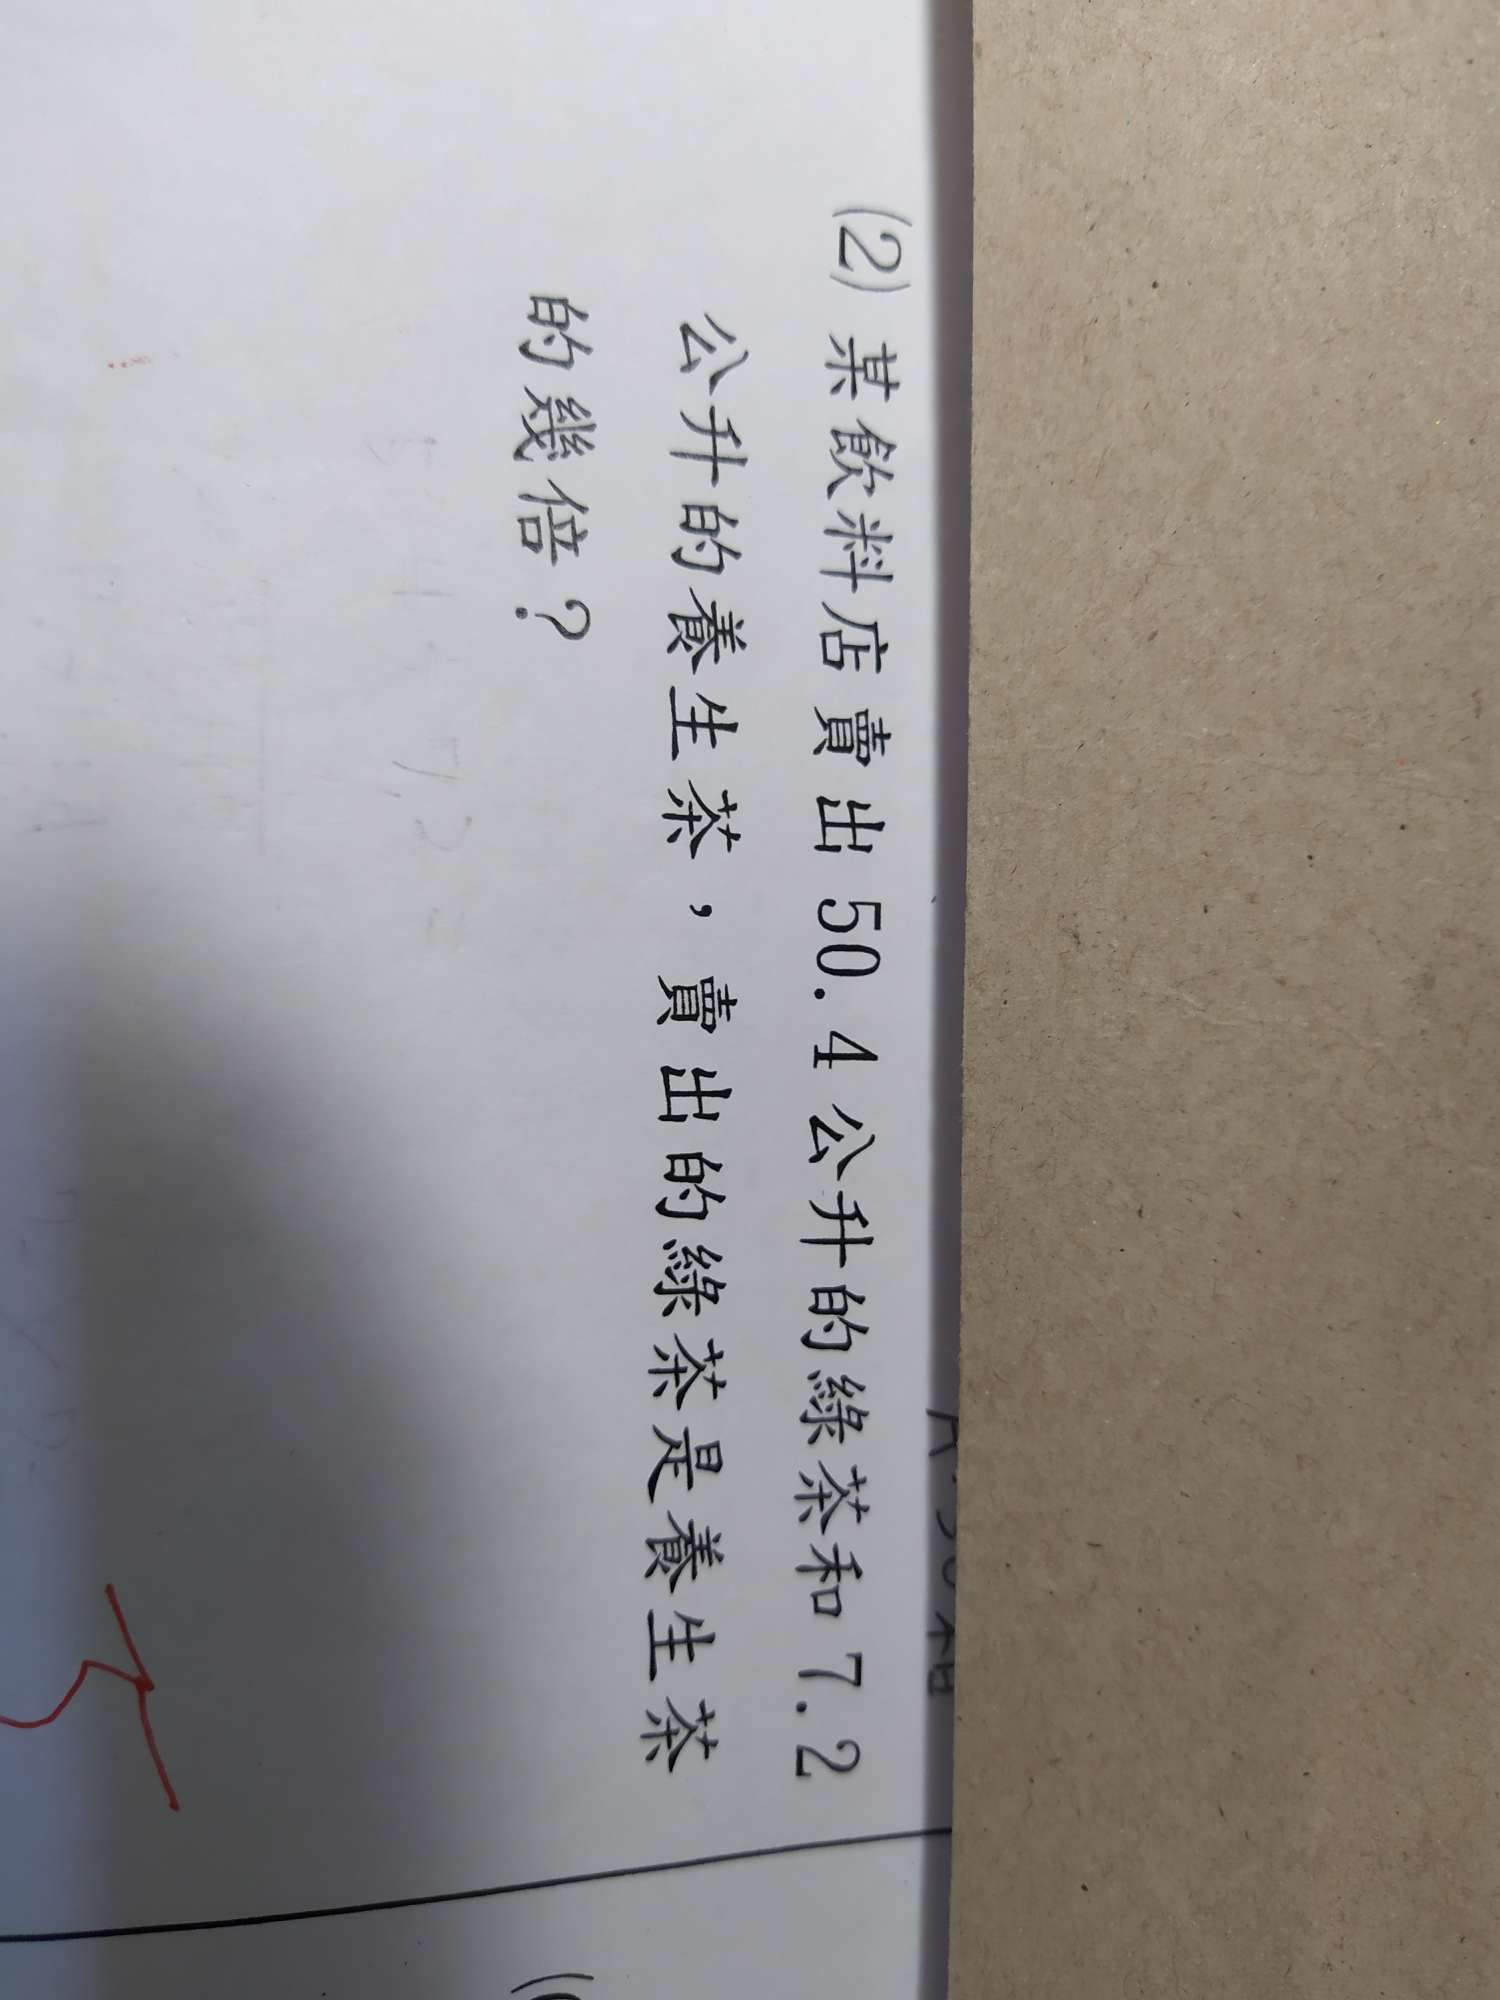 (2) 某飲料店賣出 50.4 公升的綠茶和 7.2
公升的養生茶，賣出的綠茶是養生茶
的幾倍？